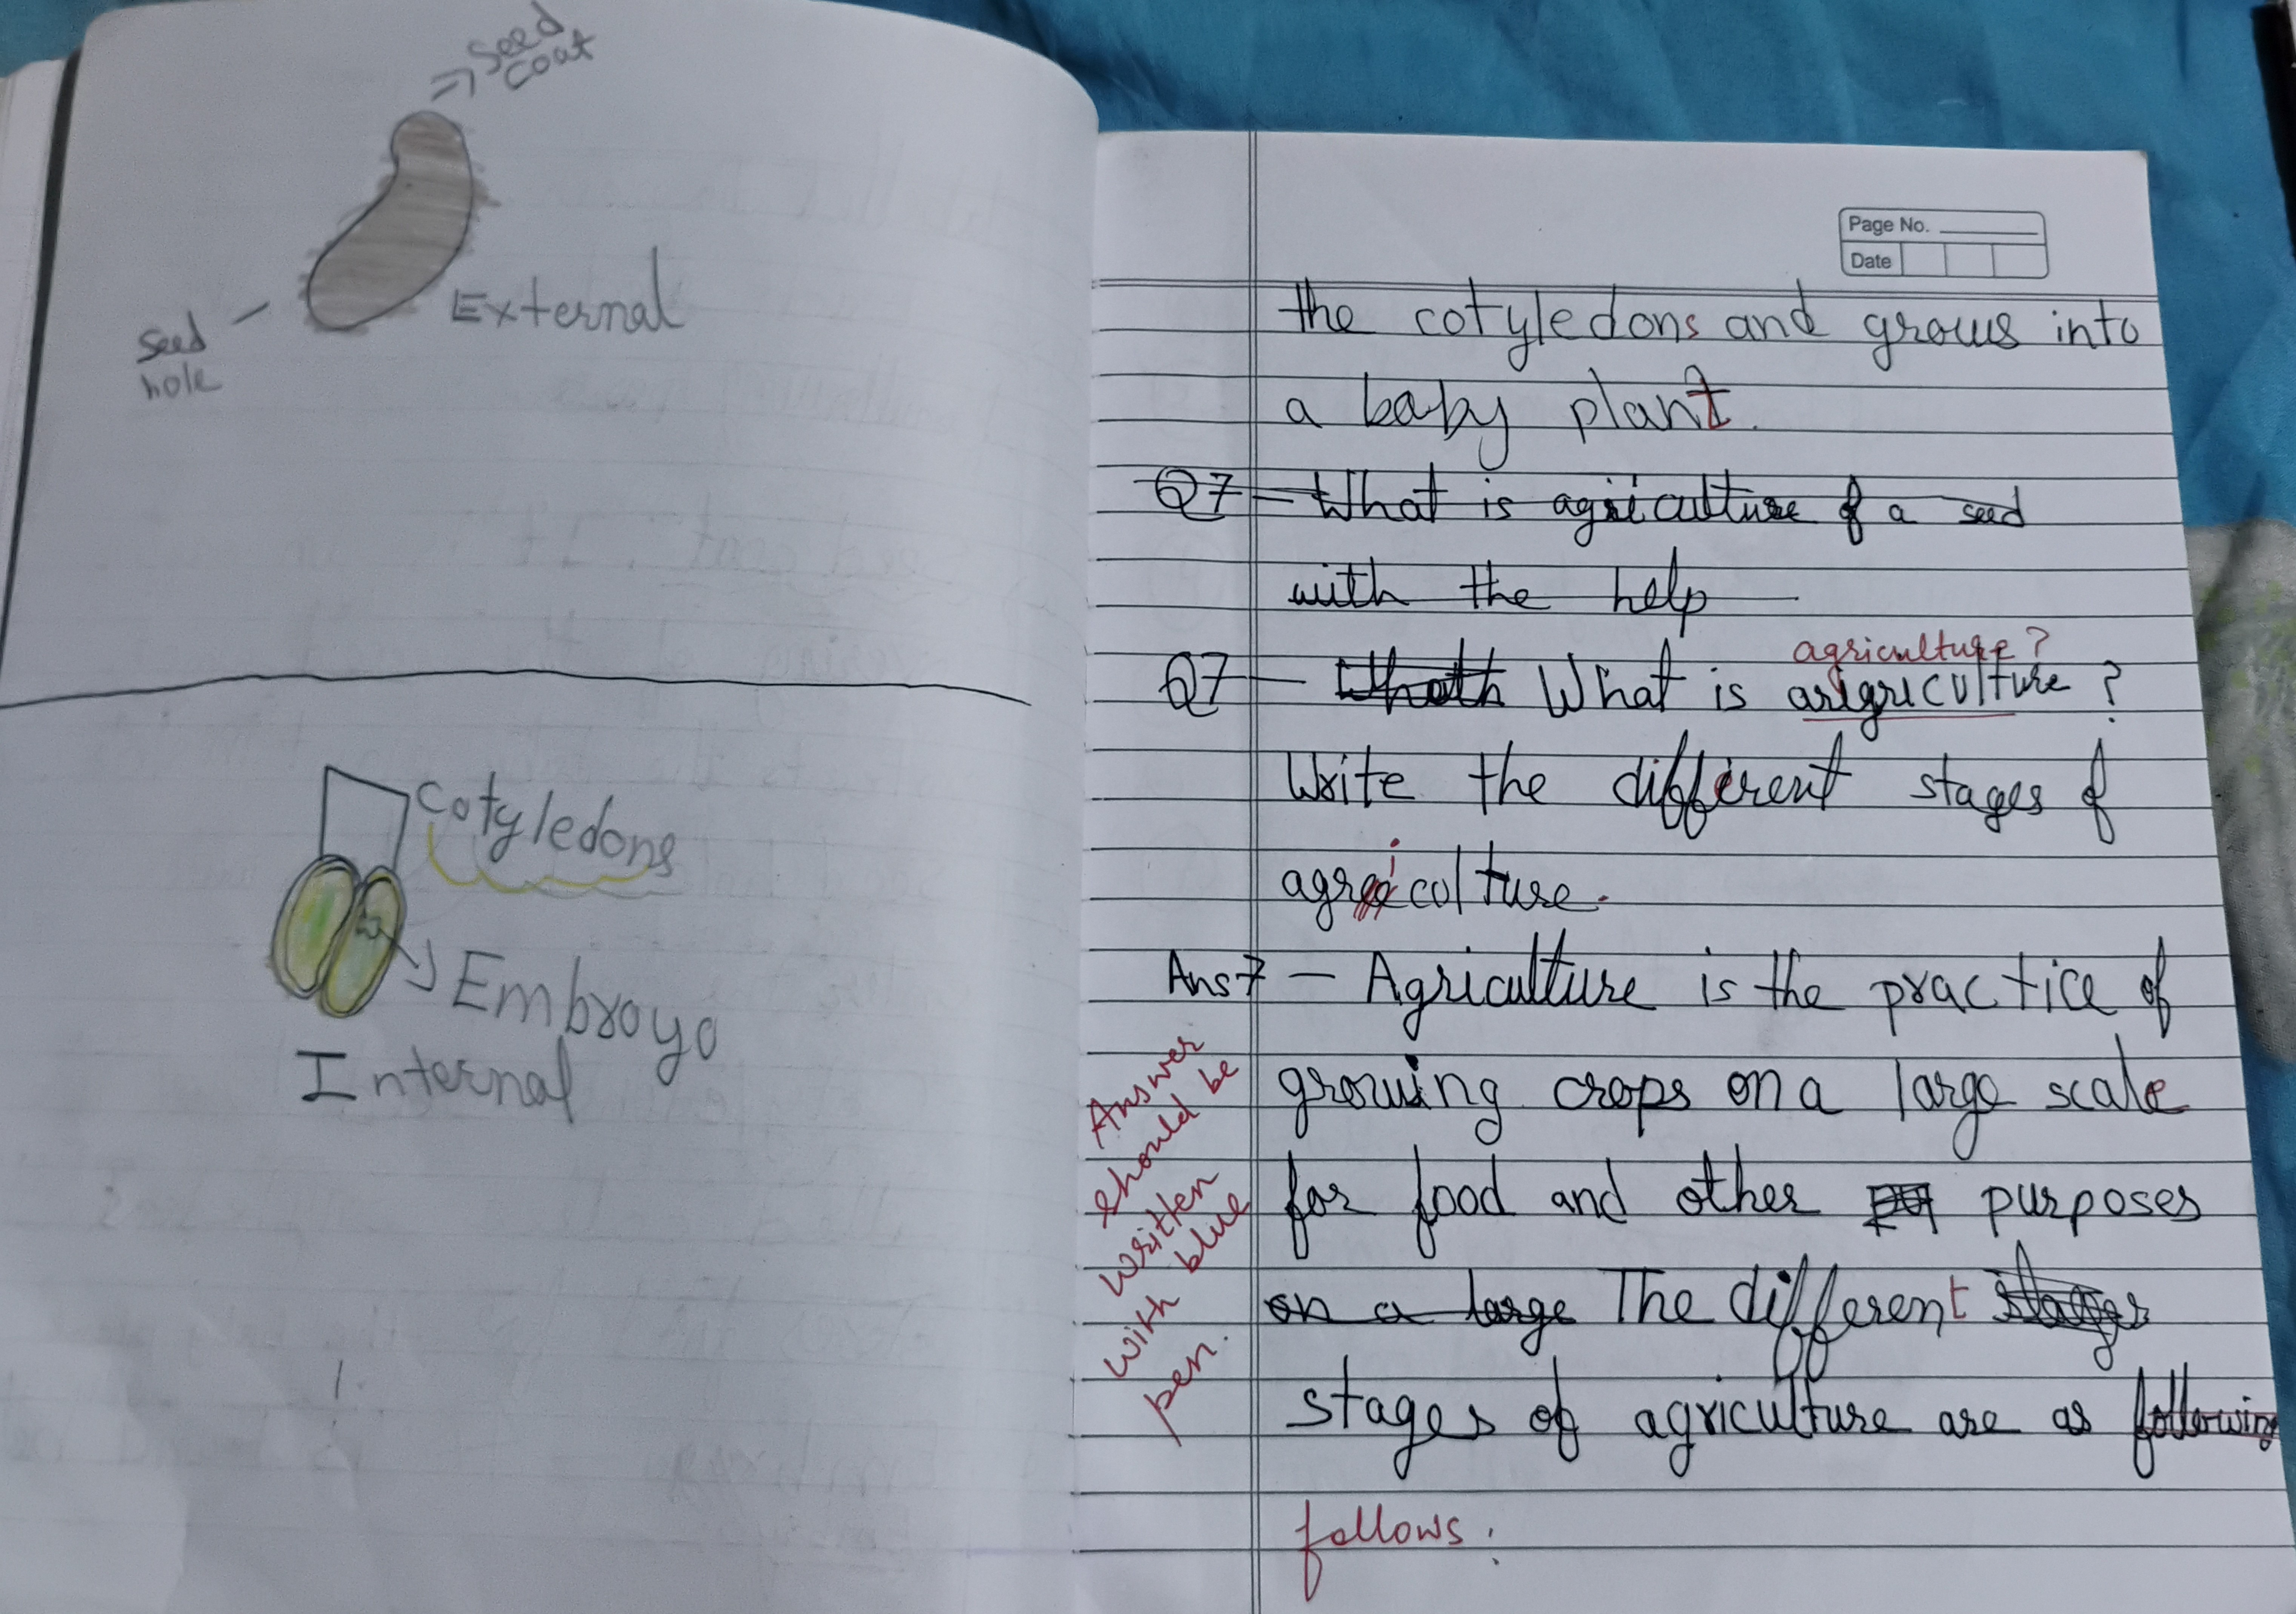 => Seed
coat
External
Seed
hole
Cotyledons
Embroyo
Internal
Page No.
Date
the cotyledons and grows into
a baby plant.
Q7 - What is agriculture of a seed
with the help
agriculture?
Q7 - What is arigriculture?
Write the different stages of
agriculture.
Ans 7 - Agriculture is the practice of
growing crops on a large scale
for food and other purposes
on a large The different stages
stages of agriculture are as following
follows:
Answer
should be
written
with blue
pen.